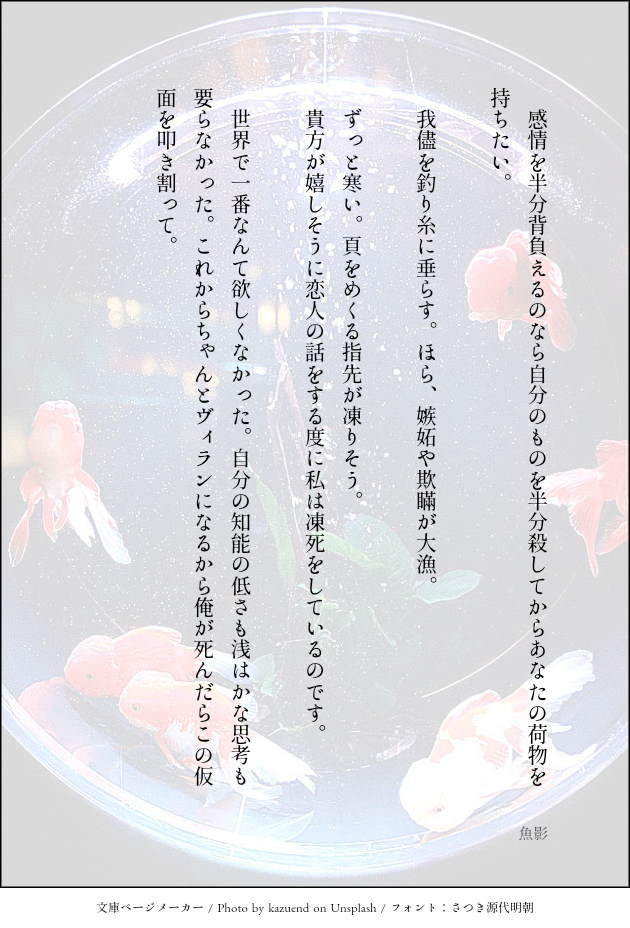 感情を半分背負えるのなら自分のものを半分殺してからあなたの荷物を
持ちたい。
我儘を釣り糸に垂らす。ほら、嫉妬や欺瞞が大漁。
ずっと寒い。頁をめくる指先が凍りそう。
貴方が嬉しそうに恋人の話をする度に私は凍死をしているのです。
世界で一番なんて欲しくなかった。自分の知能の低さも浅はかな思考も
要らなかった。これからちゃんとヴィランになるから俺が死んだらこの仮
面を叩き割って。
魚影
文庫ページメーカー / Photo by kazuend on Unsplash / フォント：さつき源代明朝